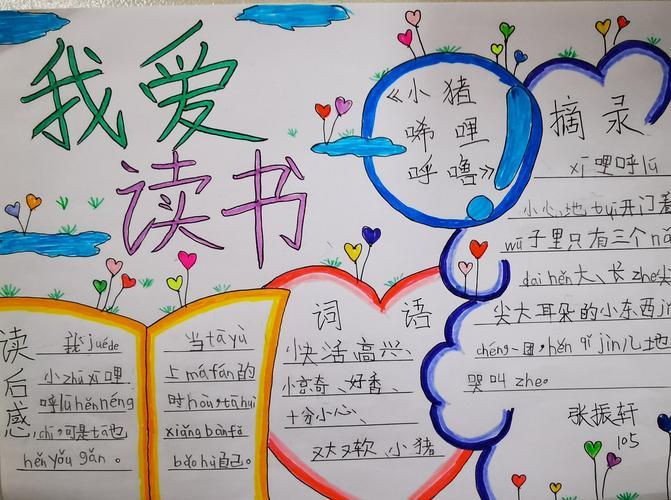 我爱
读书
《小猪
唏哩
呼噜》
摘录
xī哩呼lū
小心地tuī开门看
wū子里只有三个nǎ
dai hěn大、长zhe
尖大耳朵的小东西jǐn
chéng一团,hěn qǐ jìn儿地
哭叫zhe。
张振轩
105
词语
快活高兴、
小京奇、好香、
十分小心、
又大又软、小猪
读后感
我juéde
小zhū xī哩
呼lū hěn néng
chī,可是tā也
hěn yǒng gǎn。
当tā yù
上má fán的
时hòu,tā huì
xiǎng bàn fǎ
bǎo hù自己。